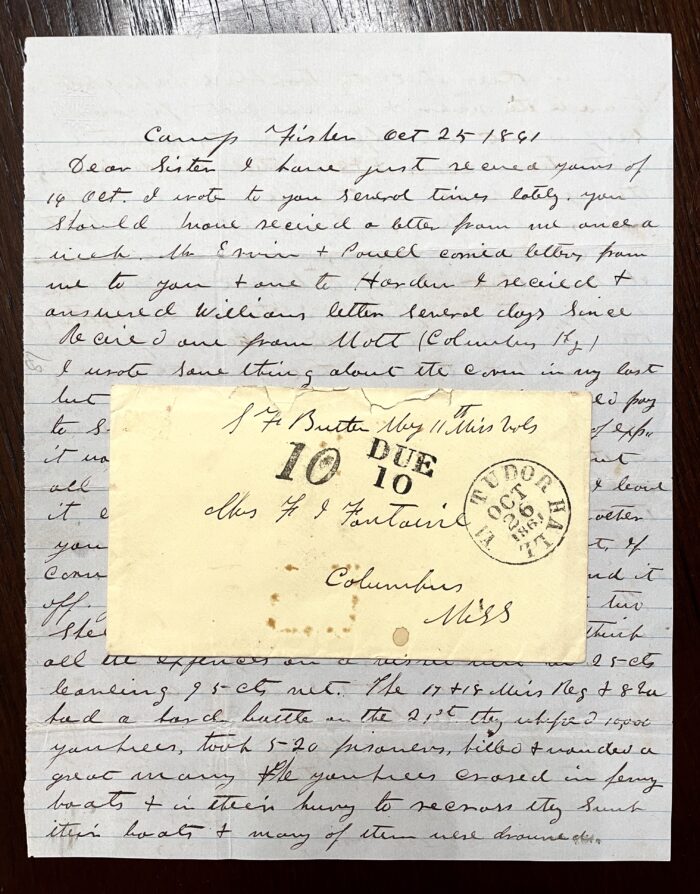 Camp Fisher Oct 25 1861
Dear Sister I have just recived yours of
14 Oct. I wrote to you several times lately. you
should have recived a letter from me once a
week. Mr Ervin & Powell corried letters from
me to you & one to Harden I recived &
answered Williams letter several days since
Recived one from Mott (Columbus Ky)
I wrote some thing about the corn in my last
but
ed pay
to S
of exps
it wo
but
all
I leave
it e
other
you
t, if
corn
nd it
off.
two
She
think
all the expences on a 25 cts
leaving 95 cts net. The 17 & 18 Miss Reg & 8 Va
had a hard battle on the 21st they whiped 10,000
yankees, took 520 prisoners, killed & wounded a
great many the yankees crosed in ferry
boats & in their hurry to recross they sunk
their boats & many of them were drowned.
S F Butler Maj 11th Miss Vols
10
DUE
10
TUDOR HALL
VA
OCT
26
1861
Mrs F J Fontaine
Columbus
Miss